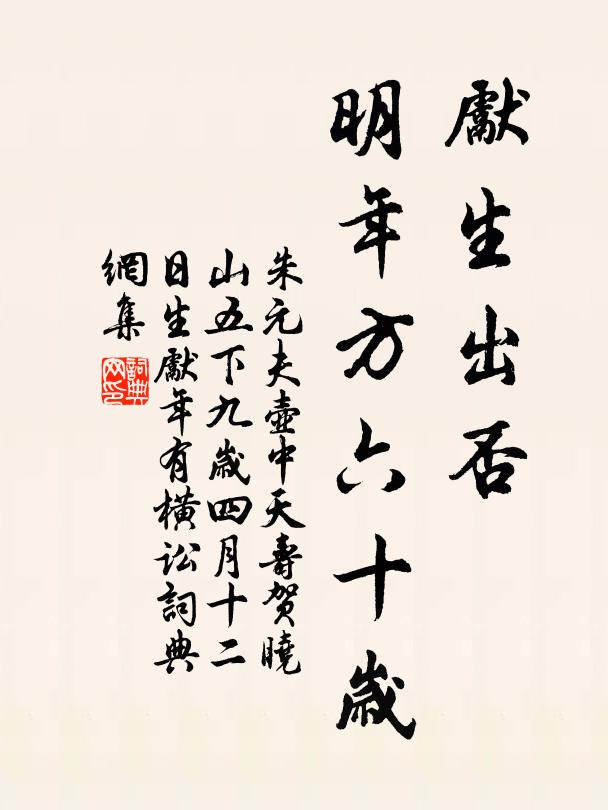 獻生出否
明年方六十歲
朱元夫壺中天壽賀曉
山五下九歲四月十二
日生獻年有橫訟詞典
網集
詞典
网印